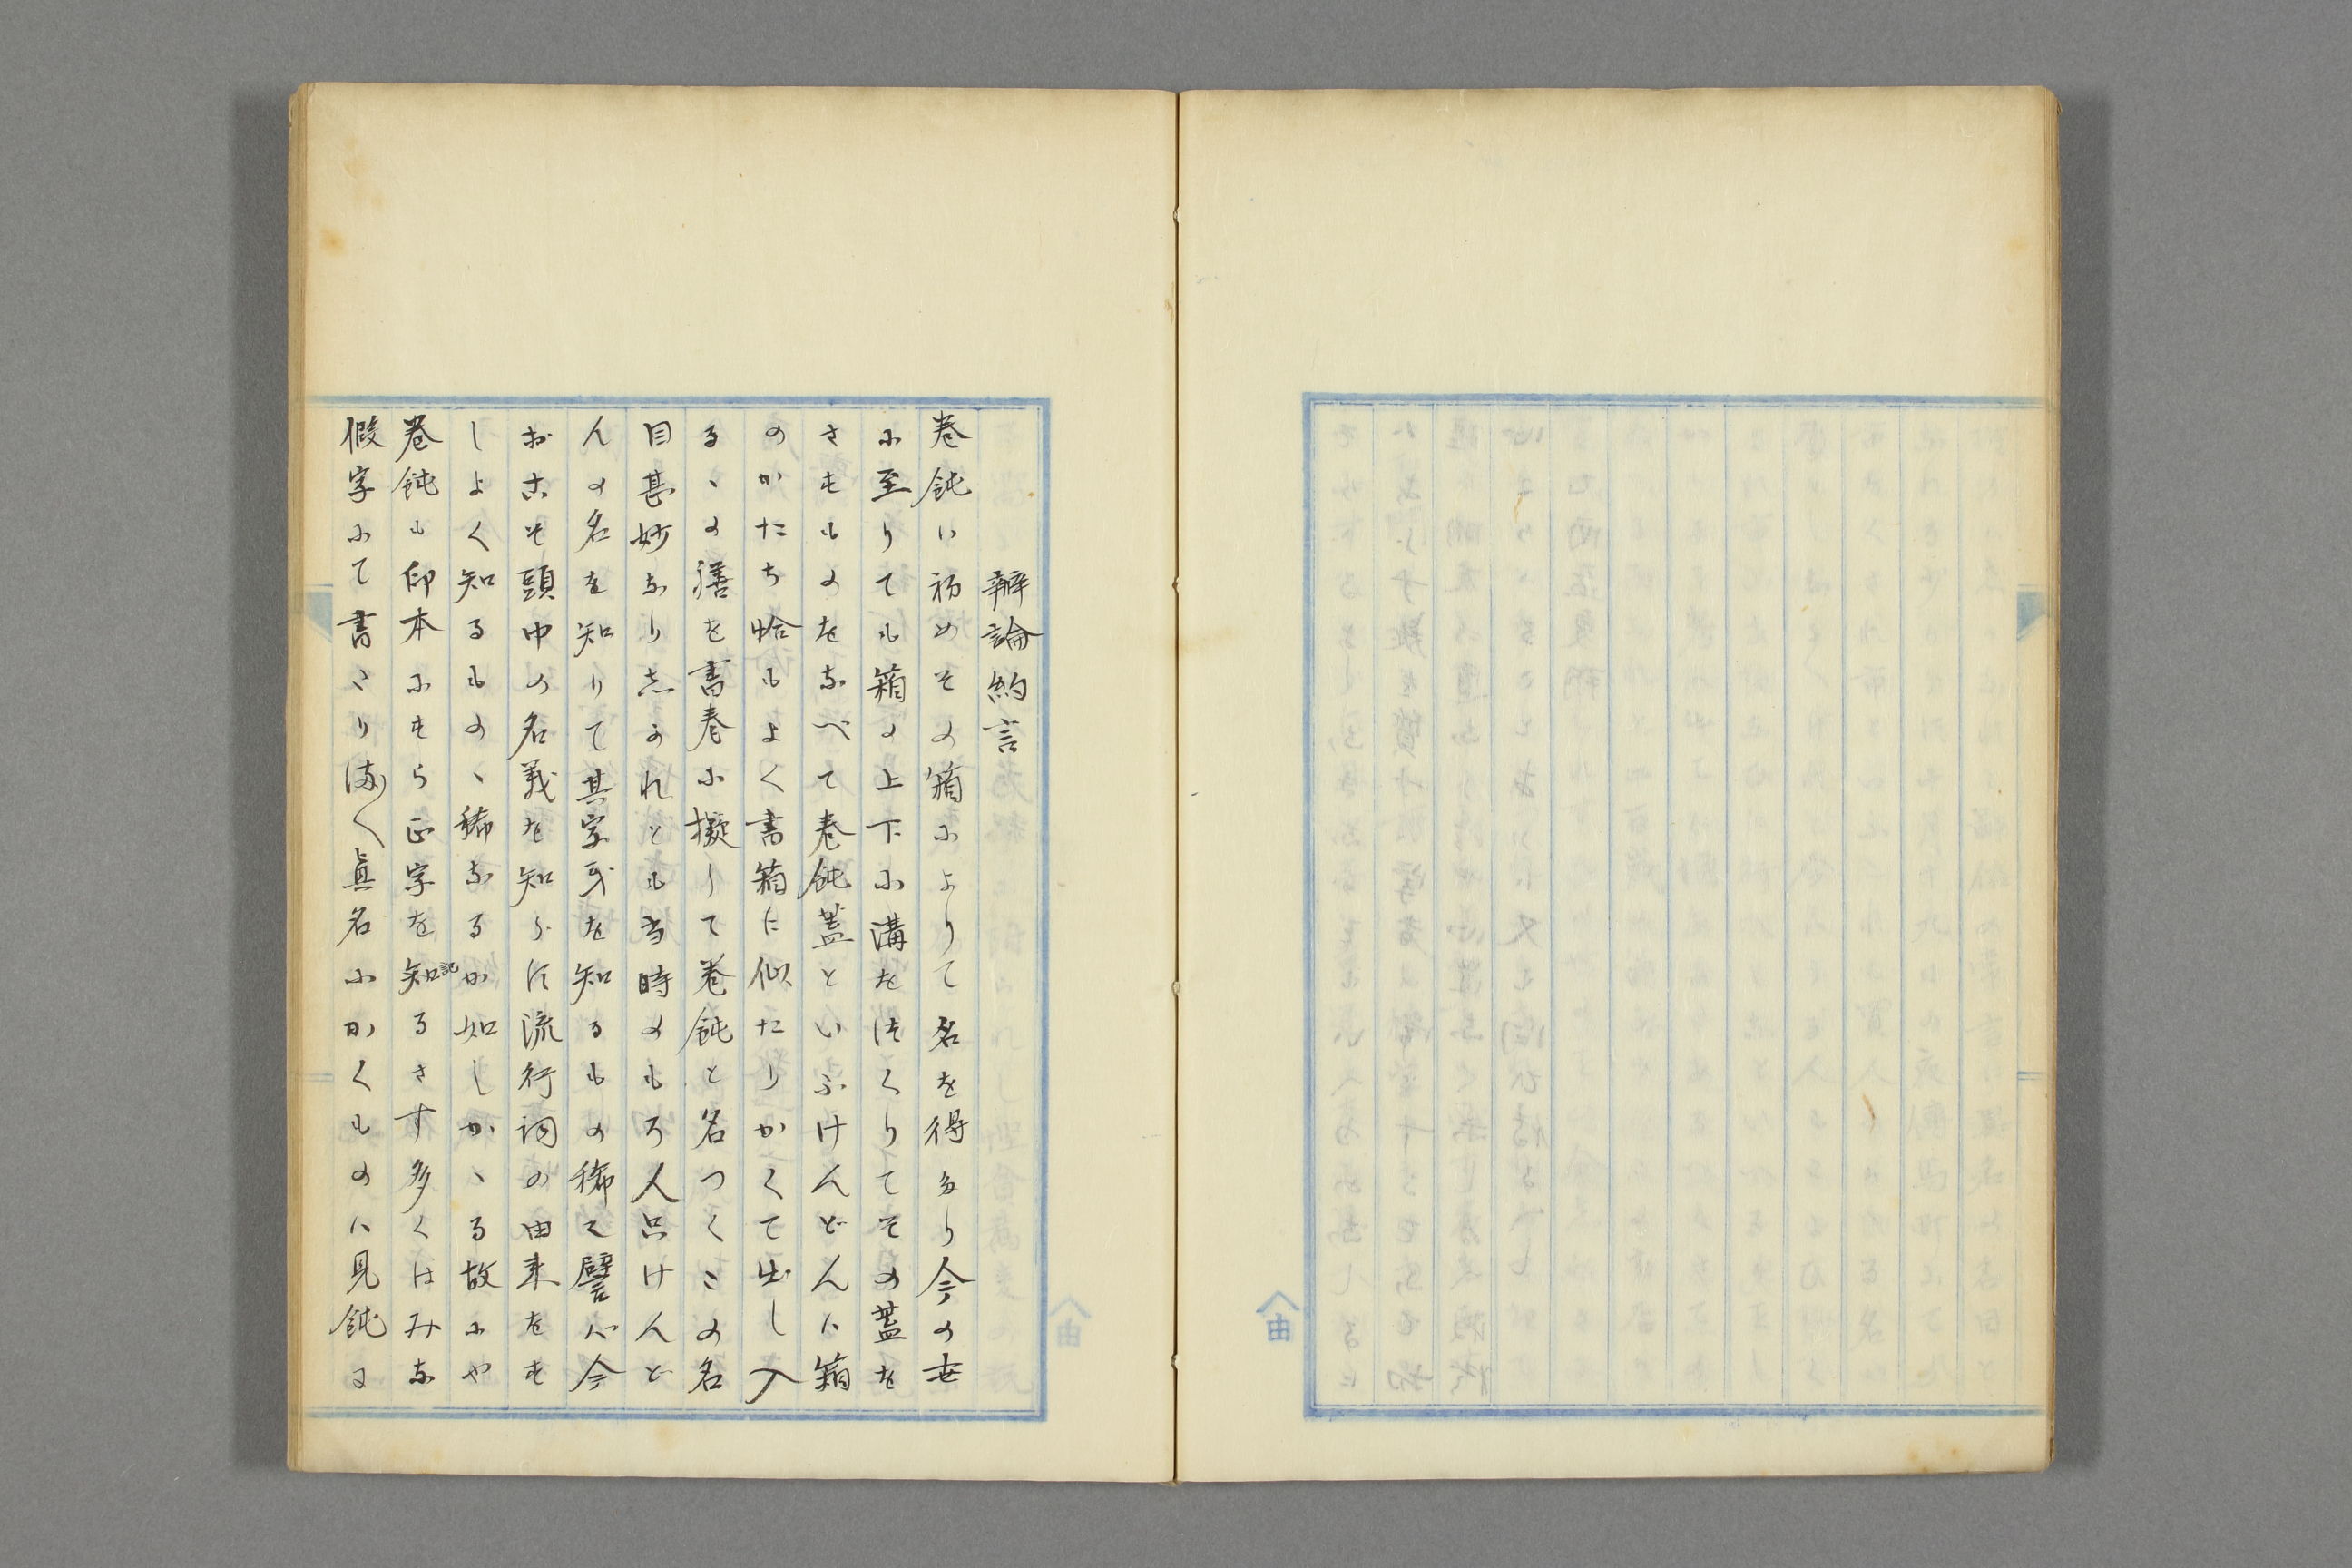 辧論約言
巻飩ハ初めその箱ふよりて名を得たり今の世
ふ至りても箱の上下ふ溝をつくりてその蓋を
さすものをなべて巻飩蓋といふけんどんハ箱
のかたち恰もよく書箱に似たりかくて出し入
るゝの膳を書巻ふ擬して巻飩と名つくこの名
目甚妙なり志かれとも当時のもろ人只けんど
んの名を知りて其字義を知るもの稀て譬バ今
おこそ頭巾の名義を知らバ流行詞の由来をも
しよく知るものゝ稀なるか如しかゝる故ふや
巻飩も印本ふもら正字を知記るさす多くはみな
假字ふて書たり偶〱真名ふかくものハ見飩又
由
由